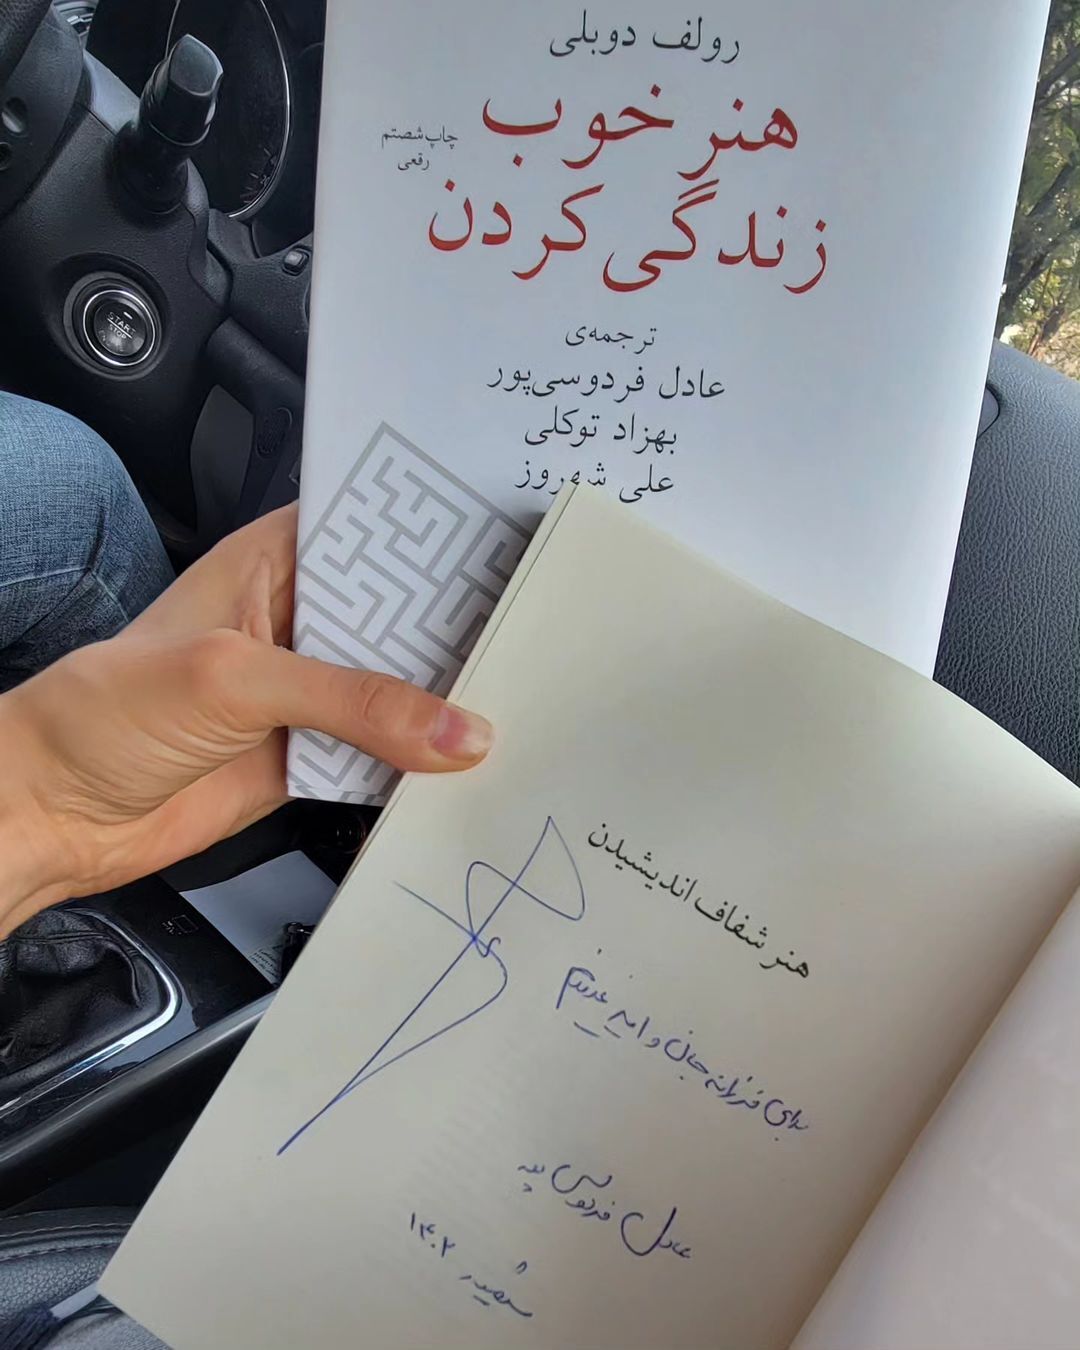 رولف دوبلی
هنر خوب
زندگی کردن
چاپ شصتم
رقعی
ترجمه‌ی
عادل فردوسی‌پور
بهزاد توکلی
علی شهروز
START
STOP
هنر شفاف اندیشیدن
برای فرزانه جان و امیر عزیزم
عادل فردوسی پور
شهریور ۱۴۰۲